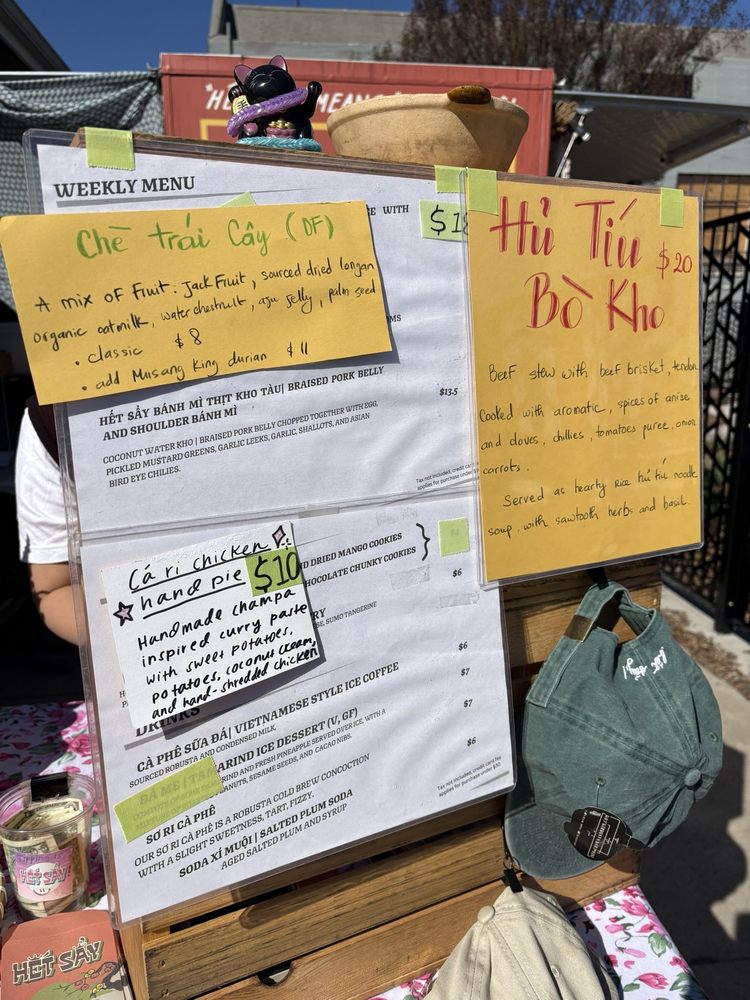 "HẾ
MEAN
WEEKLY MENU
WITH
$18
Chè trái Cây (DF)
A mix of Fruit: JackFruit, sourced dried longan
organic oatmilk, waterchestnut, aju jelly, palm seed
• classic $8
• add Musang King durian $11
HẾT SẨY BÁNH MÌ THỊT KHO TÀU| BRAISED PORK BELLY
AND SHOULDER BÁNH MÌ
$13.5
COCONUT WATER KHO | BRAISED PORK BELLY CHOPPED TOGETHER WITH EGG,
PICKLED MUSTARD GREENS, GARLIC LEEKS, GARLIC, SHALLOTS, AND ASIAN
BIRD EYE CHILIES.
Tax not included, credit card
applies for purchase under
Hủ Tíu
$20
Bò Kho
Beef stew with beef brisket, tendon
Cooked with aromatic, spices of anise
and cloves, chillies, tomatoes puree, onion
carrots.
Served as hearty Rice hủ tíu noodle
soup, with sawtooth herbs and basil.
Cà ri chicken
hand pie
$10
Handmade champa
inspired curry paste
with sweet potatoes,
potatoes, coconut cream,
and hand-shredded chicken
DRIED MANGO COOKIES
CHOCOLATE CHUNKY COOKIES
$6
RY
SUMO TANGERINE
DRINKS
$6
CÀ PHÊ SỮA ĐÁ| VIETNAMESE STYLE ICE COFFEE
SOURCED ROBUSTA AND CONDENSED MILK.
$7
ĐÁ ME | TAMARIND ICE DESSERT (V, GF)
RIND AND FRESH PINEAPPLE SERVED OVER ICE, WITH A
PEANUTS, SESAME SEEDS, AND CACAO NIBS.
$7
SƠ RI CÀ PHÊ
OUR SƠ RI CÀ PHÊ IS A ROBUSTA COLD BREW CONCOCTION
WITH A SLIGHT SWEETNESS, TART, FIZZY.
$6
SODA XÍ MUỘI | SALTED PLUM SODA
AGED SALTED PLUM AND SYRUP
Tax not included, credit card fee
applies for purchase under $30
HẾT SẨY
HẾT SẨY